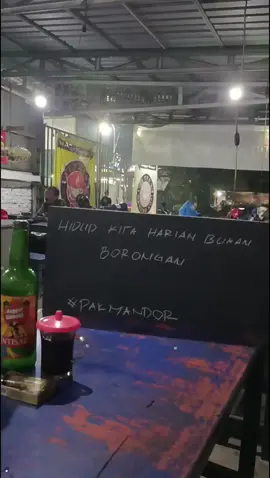 HIDUP KITA HARIAN BUKAN
BORONGAN
#PAKMANDOR